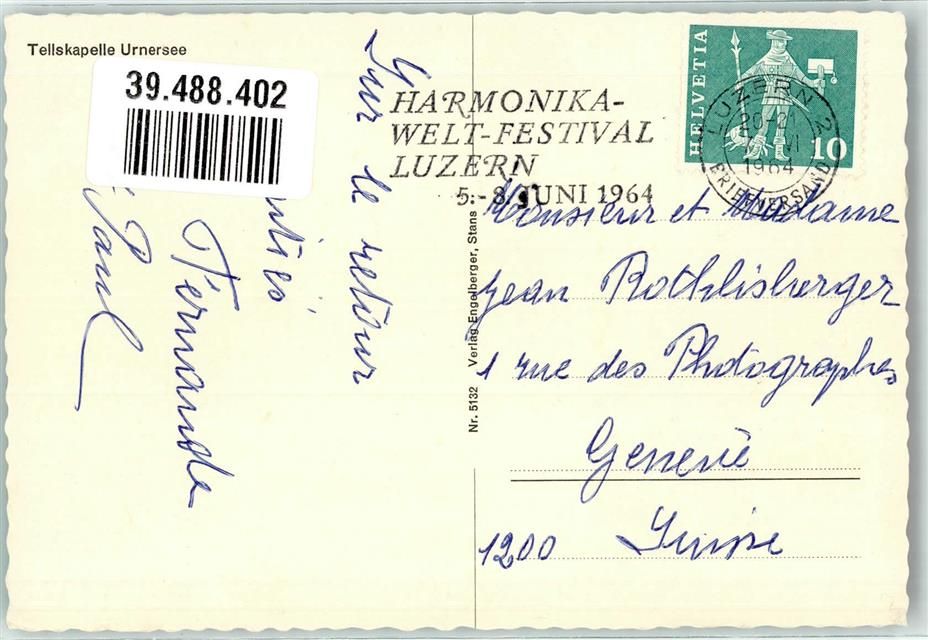 Tellskapelle Urnersee
39.488.402
HARMONIKA-
WELT-FESTIVAL
LUZERN
5.-8. JUNI 1964
HELVETIA
10
LUZERN 2
20-21
VI
1964
BRIEFVERSAND
Sur le retour
Fernande
Paul
Nr. 5132 Verlag Engelberger, Stans
Monsieur et Madame
Jean Rothlisberger
1 rue des Photographes
Genève
1200 Suisse